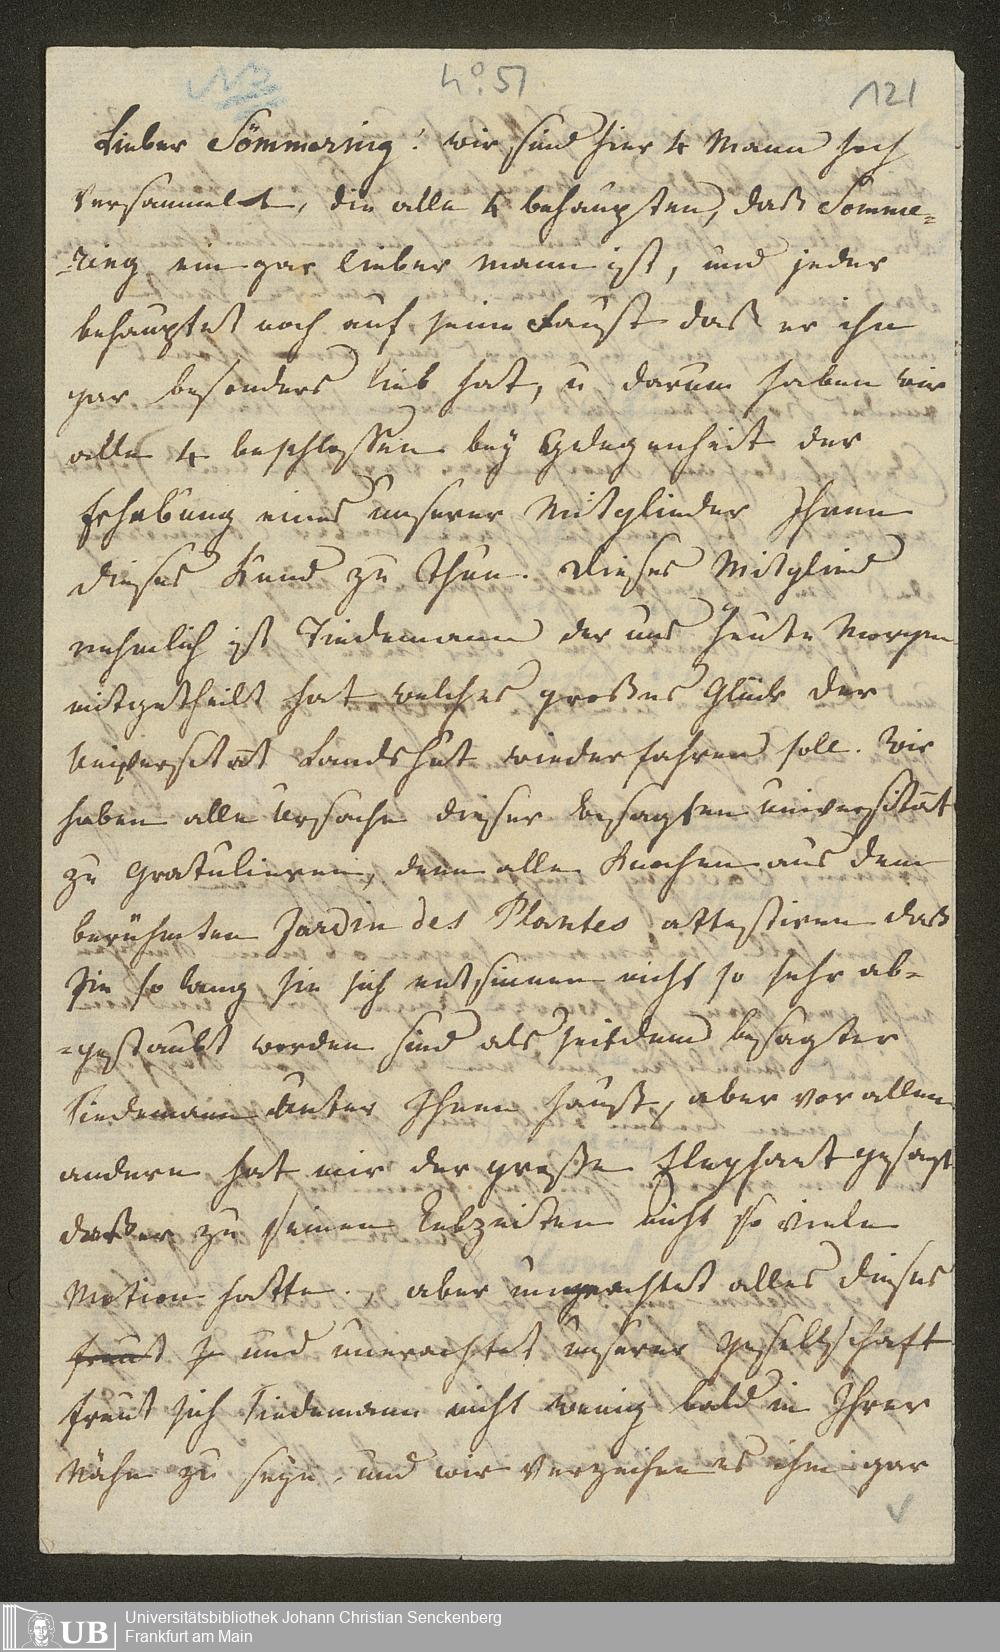 NB
No. 51
121
Lieber Sömmering! wir sind hier 4 Mann hoch
versammelt, die alle 4 behaupten, daß Sömme-
-ring ein gar lieber Mann ist, und jeder
behauptet noch auf seine Faust daß er ihn
gar besonders lieb hat, u darum haben wir
alle 4 beschlossen bey Gelegenheit der
Erhebung eines unserer Mitglieder Ihnen
dieses Kund zu thun. Dieses Mitglied
nehmlich ist Tiedemann der uns heute Morgen
mitgetheilt hat welches großes Glück der
Universitaet Landshut wiederfahren soll. Wir
haben alle Ursache dieser besagten Universitaet
zu gratulieren, denn alle Knochen aus dem
berühmten Jardin des Plantes attestiren daß
Sie so lang sie sich entsinnen nicht so sehr ab-
-gestaubt worden sind als seitdem besagter
Tiedemann unter Ihnen haust, aber vor allen
andern hat mir der große Elephant gesagt
daß er zu seinen Lebzeiten nicht so viele
Motion hatte., aber ungeachtet alles dieses
freut und unerachtet unserer Gesellschaft
freut sich Tiedemann nicht wenig bald in Ihrer
Nähe zu seyn, und wir verzeihen es ihm gar
UB
Universitätsbibliothek Johann Christian Senckenberg
Frankfurt am Main